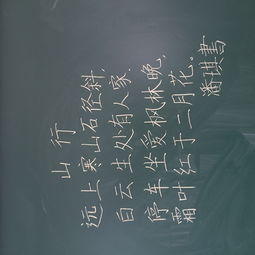 山行
远上寒山石径斜,
白云生处有人家.
停车坐爱枫林晚,
霜叶红于二月花。
潘琪書